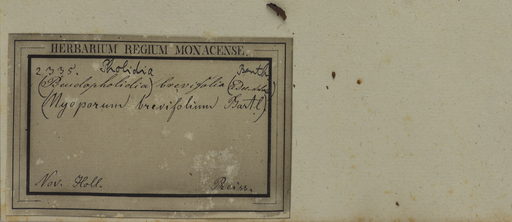 HERBARIUM REGIUM MONACENSE.
2335. Pholidia Benth
(Pseudopholidia) brevifolia
(Myoporum brevifolium Bartl)
Nov. Holl. Preiss.